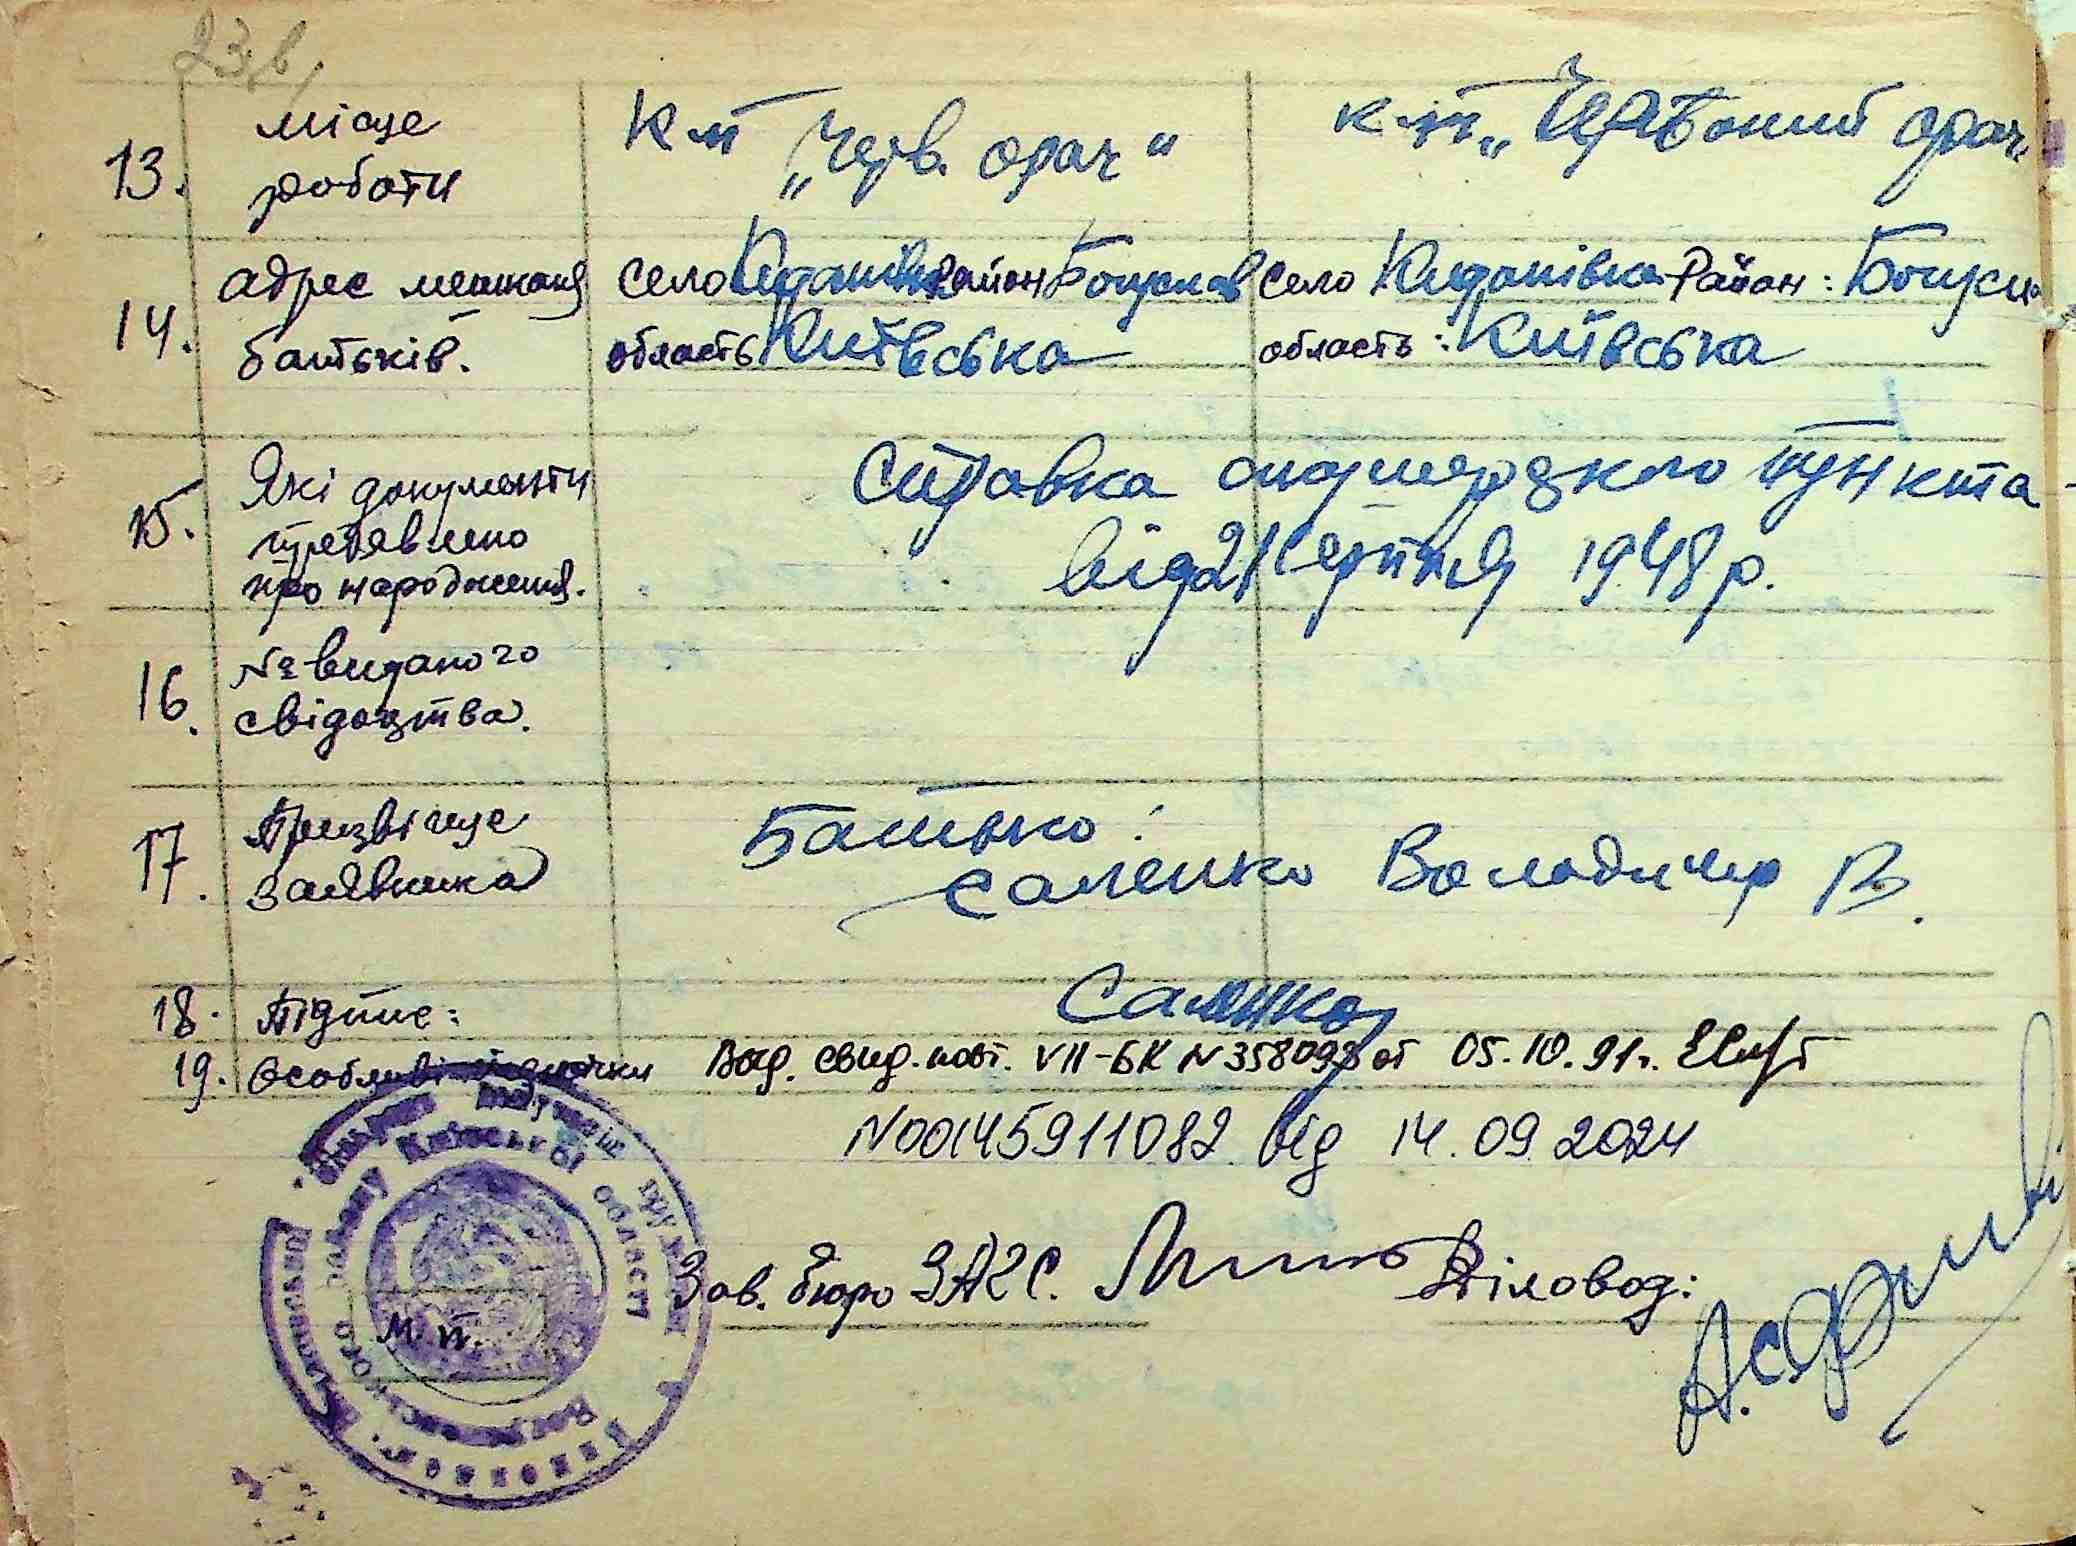 23 в
13. місце роботи
К-п „Черв. орач“
К-п „Червоний орач“
14. адрес мешканя батьків.
село Киданівка Район Богуслав
область Київська
село Киданівка Район: Богусл
область: Київська
15. Які документи
предявлено
про народження.
Справка акушерского пункта
від 21 серпня 1948 р.
16. № виданого
свідоцтва.
17. Призвіще
заявника
Батько:
Саленко Володимир В.
18. Підпис:
Саленко
19. Особливі відмітки
Выд. свид. повт. VII-БК N 358098 от 05.10.91г.
N00145911082 від 14.09.2024
Зав. бюро ЗАГС.
Діловод:
М. П.
Київської області